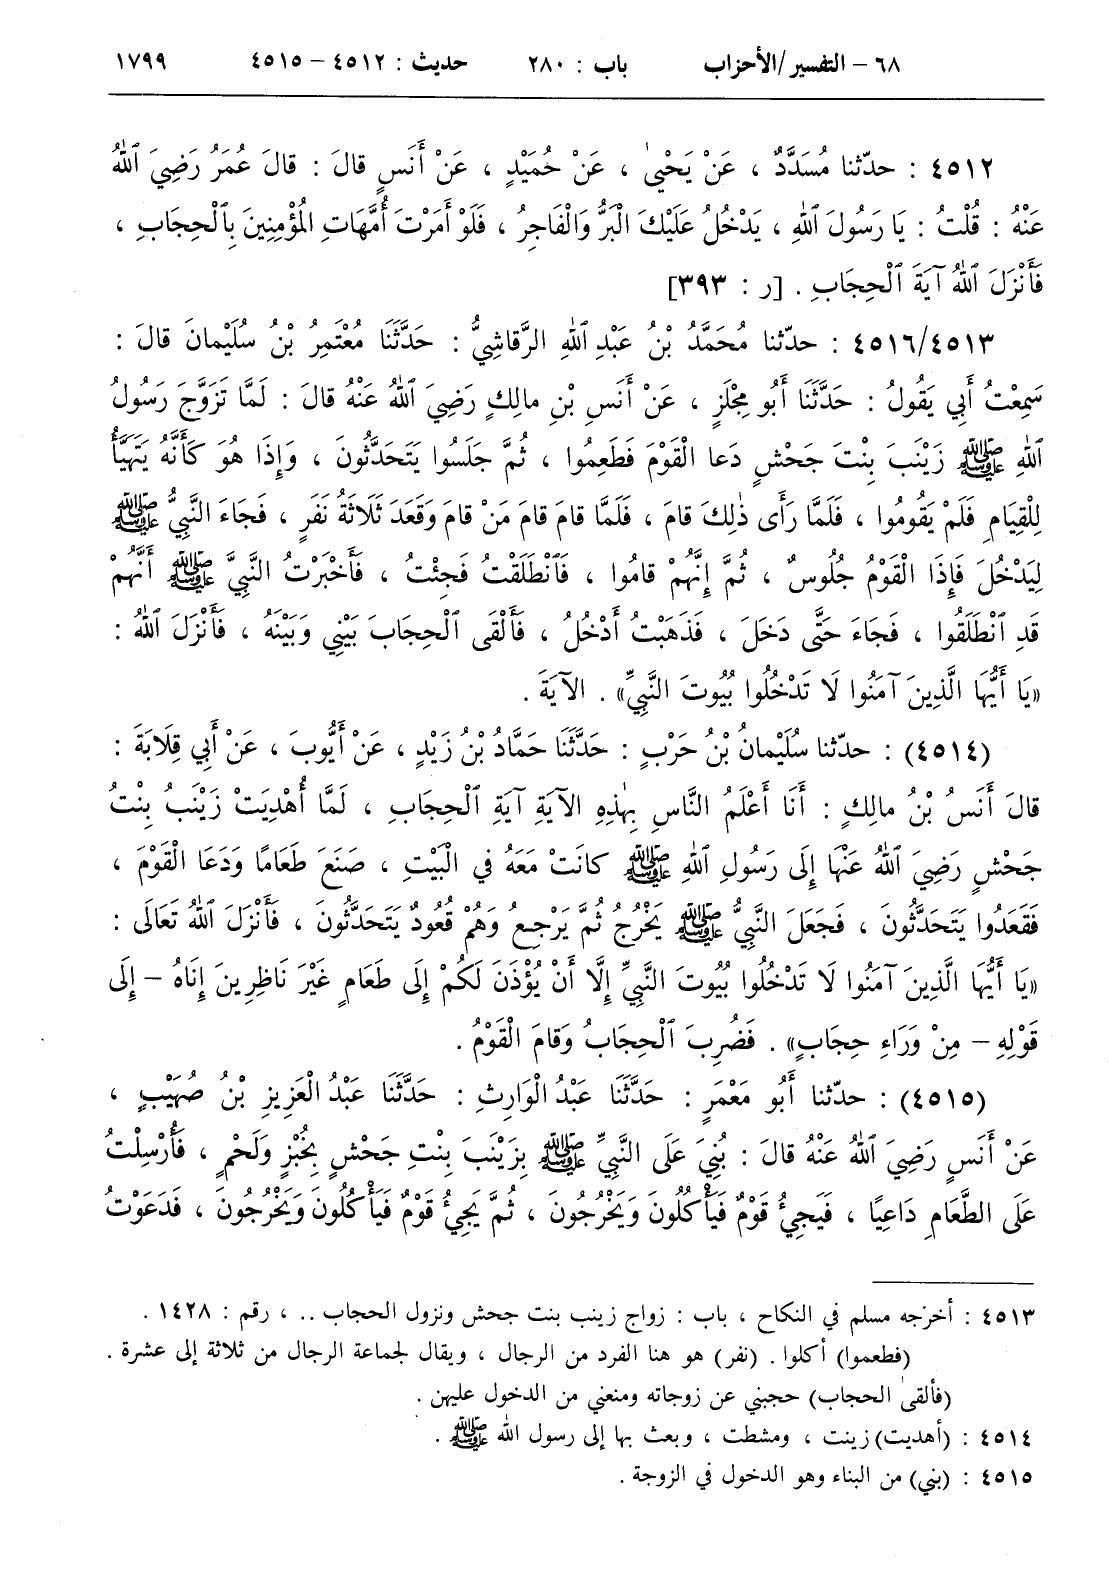 ٦٨ – التفسير/الأحزاب باب : ٢٨٠ حديث : ٤٥١٢ – ٤٥١٥ ١٧٩٩
٤٥١٢ : حدّثنا مُسَدَّدٌ ، عَنْ يَحْيىٰ ، عَنْ حُمَيْدٍ ، عَنْ أَنَسٍ قالَ : قالَ عُمَرُ رَضِيَ ٱللهُ
عَنْهُ : قُلْتُ : يَا رَسُولَ ٱللهِ ، يَدْخُلُ عَلَيْكَ الْبَرُّ وَالْفَاجِرُ ، فَلَوْ أَمَرْتَ أُمَّهَاتِ المُؤْمِنِينَ بِٱلْحِجَابِ ،
فَأَنْزَلَ ٱللهُ آيَةَ ٱلْحِجَابِ . [ر : ٣٩٣]
٤٥١٦/٤٥١٣ : حدّثنا مُحَمَّدُ بْنُ عَبْدِ ٱللهِ الرَّقاشِيُّ : حَدَّثَنَا مُعْتَمِرُ بْنُ سُلَيْمانَ قالَ :
سَمِعْتُ أَبِي يَقُولُ : حَدَّثَنَا أَبُو مِجْلَزٍ ، عَنْ أَنَسِ بْنِ مالِكٍ رَضِيَ ٱللهُ عَنْهُ قالَ : لَمَّا تَزَوَّجَ رَسُولُ
ٱللهِ ﷺ زَيْنَبَ بِنْتَ جَحْشٍ دَعا الْقَوْمَ فَطَعِمُوا ، ثُمَّ جَلَسُوا يَتَحَدَّثُونَ ، وَإِذَا هُوَ كَأَنَّهُ يَتَهَيَّأُ
لِلْقِيَامِ فَلَمْ يَقُومُوا ، فَلَمَّا رَأَى ذٰلِكَ قامَ ، فَلَمَّا قامَ قامَ مَنْ قامَ وَقَعَدَ ثَلَاثَةُ نَفَرٍ ، فَجَاءَ النَّبِيُّ ﷺ
لِيَدْخُلَ فَإِذَا الْقَوْمُ جُلُوسٌ ، ثُمَّ إِنَّهُمْ قامُوا ، فَٱنْطَلَقْتُ فَجِئْتُ ، فَأَخْبَرْتُ النَّبِيَّ ﷺ أَنَّهُمْ
قَدِ ٱنْطَلَقُوا ، فَجَاءَ حَتَّى دَخَلَ ، فَذَهَبْتُ أَدْخُلُ ، فَأَلْقَى ٱلْحِجَابَ بَيْنِي وَبَيْنَهُ ، فَأَنْزَلَ ٱللهُ :
«يَا أَيُّهَا الَّذِينَ آمَنُوا لَا تَدْخُلُوا بُيُوتَ النَّبِيِّ» . الآيَةَ .
(٤٥١٤) : حدّثنا سُلَيْمانُ بْنُ حَرْبٍ : حَدَّثَنَا حَمَّادُ بْنُ زَيْدٍ ، عَنْ أَيُّوبَ ، عَنْ أَبِي قِلَابَةَ :
قالَ أَنَسُ بْنُ مالِكٍ : أَنَا أَعْلَمُ النَّاسِ بِهٰذِهِ الآيَةِ آيَةِ ٱلْحِجَابِ ، لَمَّا أُهْدِيَتْ زَيْنَبُ بِنْتُ
جَحْشٍ رَضِيَ ٱللهُ عَنْهَا إِلَى رَسُولِ ٱللهِ ﷺ كانَتْ مَعَهُ في الْبَيْتِ ، صَنَعَ طَعَامًا وَدَعَا الْقَوْمَ ،
فَقَعَدُوا يَتَحَدَّثُونَ ، فَجَعَلَ النَّبِيُّ ﷺ يَخْرُجُ ثُمَّ يَرْجِعُ وَهُمْ قُعُودٌ يَتَحَدَّثُونَ ، فَأَنْزَلَ ٱللهُ تَعَالَى :
«يَا أَيُّهَا الَّذِينَ آمَنُوا لَا تَدْخُلُوا بُيُوتَ النَّبِيِّ إِلَّا أَنْ يُؤْذَنَ لَكُمْ إِلَى طَعَامٍ غَيْرَ نَاظِرِينَ إِنَاهُ – إِلَى
قَوْلِهِ – مِنْ وَرَاءِ حِجَابٍ» . فَضُرِبَ ٱلْحِجَابُ وَقامَ الْقَوْمُ .
(٤٥١٥) : حدّثنا أَبُو مَعْمَرٍ : حَدَّثَنَا عَبْدُ الْوَارِثِ : حَدَّثَنَا عَبْدُ الْعَزِيزِ بْنُ صُهَيْبٍ ،
عَنْ أَنَسٍ رَضِيَ ٱللهُ عَنْهُ قالَ : بُنِيَ عَلَى النَّبِيِّ ﷺ بِزَيْنَبَ بِنْتِ جَحْشٍ بِخُبْزٍ وَلَحْمٍ ، فَأُرْسِلْتُ
عَلَى الطَّعَامِ دَاعِيًا ، فَيَجِيءُ قَوْمٌ فَيَأْكُلُونَ وَيَخْرُجُونَ ، ثُمَّ يَجِيءُ قَوْمٌ فَيَأْكُلُونَ وَيَخْرُجُونَ ، فَدَعَوْتُ
٤٥١٣ : أخرجه مسلم في النكاح ، باب : زواج زينب بنت جحش ونزول الحجاب .. ، رقم : ١٤٢٨ .
(فطعموا) أكلوا . (نفر) هو هنا الفرد من الرجال ، ويقال لجماعة الرجال من ثلاثة إلى عشرة .
(فألقىٰ الحجاب) حجبني عن زوجاته ومنعني من الدخول عليهن .
٤٥١٤ : (أهديت) زينت ، ومشطت ، وبعث بها إلى رسول الله ﷺ .
٤٥١٥ : (بني) من البناء وهو الدخول في الزوجة .